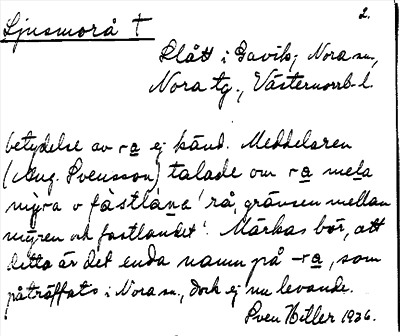 Ljusmorå †
2.
Slått i Gavik, Nora sn.,
Nora tg., Västernorrl. l.
betydelse av -ra ej känd. Meddelaren
(Aug. Svensson) talade om ra mela
myra o fastlana 'rå, gränsen mellan
myren och fastlandet'. Märkas bör, att
detta är det enda namn på -ra, som
påträffats i Nora sn., dock ej nu levande.
Sven Hiller 1936.